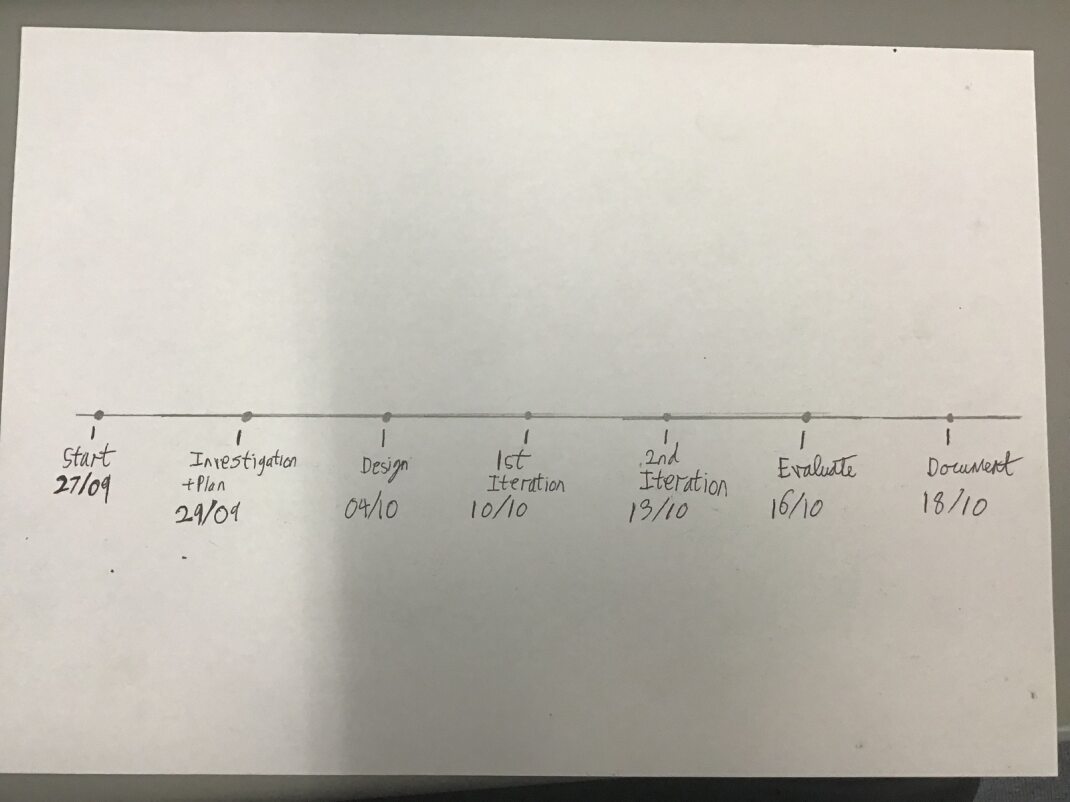 Start
27/09
Investigation
+Plan
29/09
Design
04/10
1st
Iteration
10/10
2nd
Iteration
13/10
Evaluate
16/10
Document
18/10